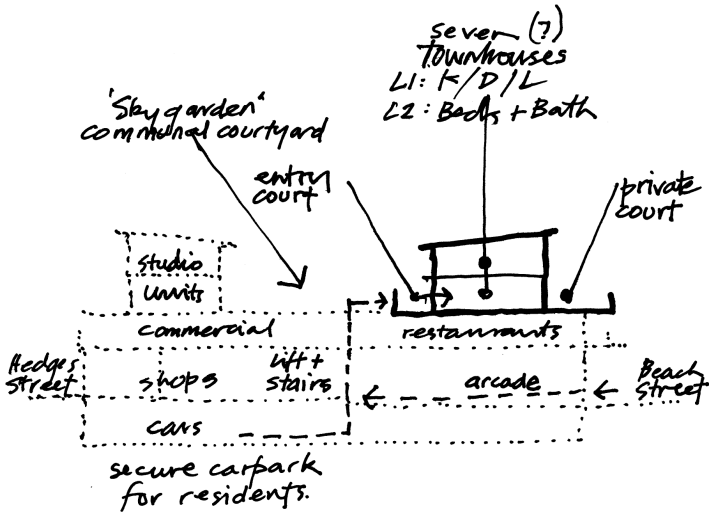 seven (?)
townhouses
L1: K/D/L
L2: Beds + Bath
'Sky garden'
communal courtyard
entry
court
private
court
studio
units
commercial
restaurants
Hedges
Street
shops
lift +
stairs
arcade
Beach
Street
cars
secure carpark
for residents.